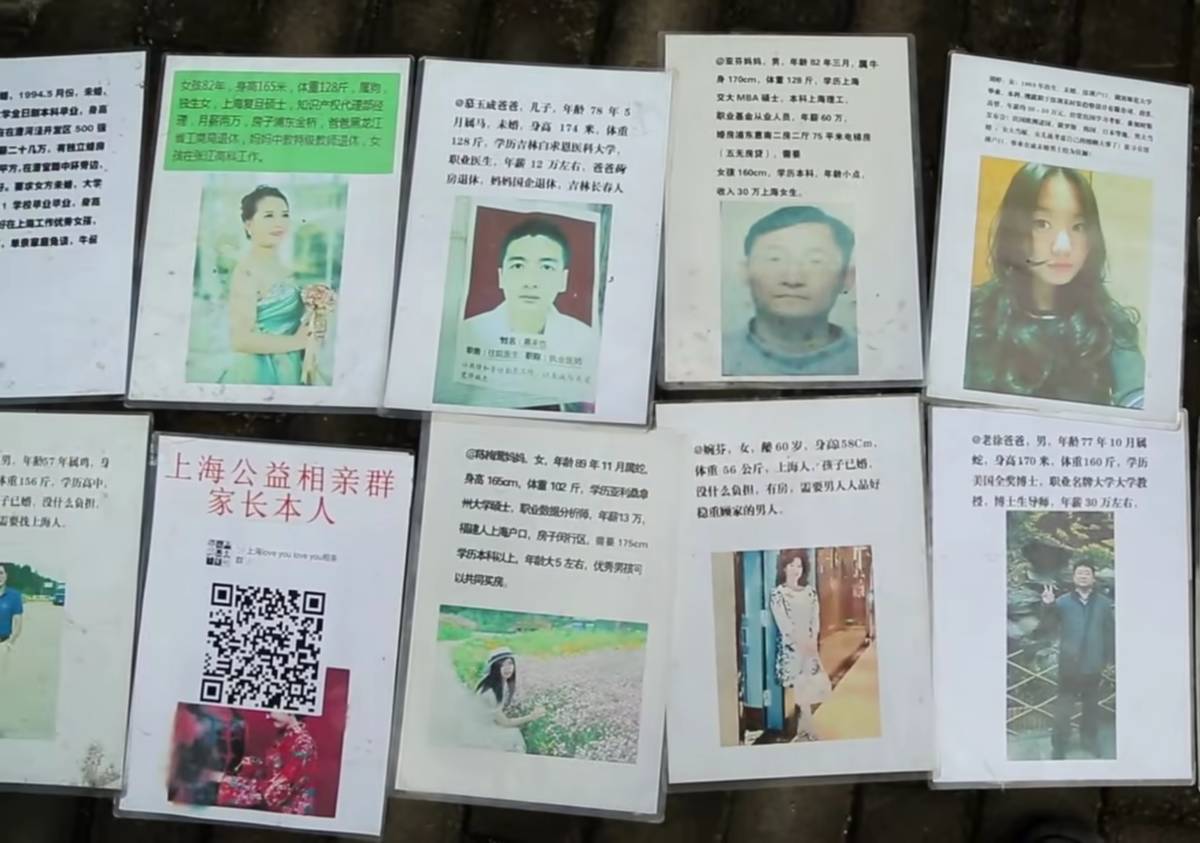 婚，1994.5月份，未婚，
学全日制本科毕业，身高
在漕河泾开发区 500 强
薪二十几万，有独立婚房
平方，在浦室园中环旁边，
好。要求女方未婚，大学
1 学校毕业毕业，身高
好在上海工作优秀女孩，
，单亲家庭免谈，牛叔
女孩82年，身高165米，体重128斤，属狗，
独生女，上海复旦硕士，知识产权代理部经
理，月薪两万，房子浦东金桥，爸爸黑龙江
省工商局退休，妈妈中教特级教师退休，女
孩在张江高科工作。
@慕玉成爸爸，儿子，年龄 78 年 5
月属马，未婚，身高 174 米，体重
128斤，学历吉林白求恩医科大学，
职业医生，年薪 12 万左右，爸爸
房退休，妈妈国企退休，吉林长春人
职称：执业医师
@亚芬妈妈，男，年龄 82 年三月，属牛
身 170cm，体重 128 斤，学历上海
交大 MBA 硕士，本科上海理工，
职业基金从业人员，年薪 60 万，
婚房浦东惠南二房二厅 75 平米电梯房
（五无房贷），需要
女孩 160cm，学历本科，年龄小点，
收入 30 万上海女生。
男，年龄57年属鸡，身
体重156斤，学历高中，
子已婚，没什么负担，
需要找上海人。
上海公益相亲群
家长本人
上海love you love you相亲
群
@陈梅莺妈妈，女，年龄 89 年 11 月属蛇，
身高 165cm，体重 102 斤，学历亚利桑拿
州大学硕士，职业数据分析师，年薪13 万，
福建人上海户口，房子闵行区，需要 175cm
学历本科以上，年龄大5 左右，优秀男孩可
以共同买房。
@婉芬，女，60岁，身高158Cm，
体重 56 公斤，上海人，孩子已婚，
没什么负担，有房，需要男人人品好
稳重顾家的男人。
@老徐爸爸，男，年龄 77 年 10 月属
蛇，身高170 米，体重160 斤，学历
美国全奖博士，职业名牌大学大学教
授，博士生导师，年薪 30 万左右，